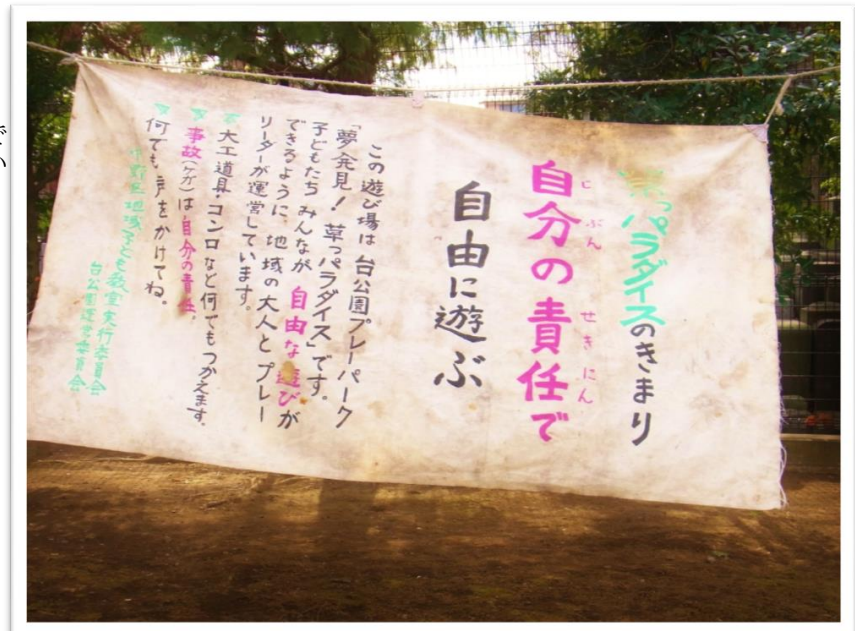 草っパラダイスのきまり
じぶん せきにん
自分の責任で
自由に遊ぶ
この遊び場は台公園プレーパーク
「夢発見!草っパラダイス」です。
子どもたちみんなが自由な遊びが
できるように、地域の大人とプレー
リーダーが運営しています。
大工道具・コンロなど何でもつかえます。
事故(ケガ)は自分の責任。
何でも声をかけてね。
中野区地域子ども教室実行委員会
台公園運営委員会